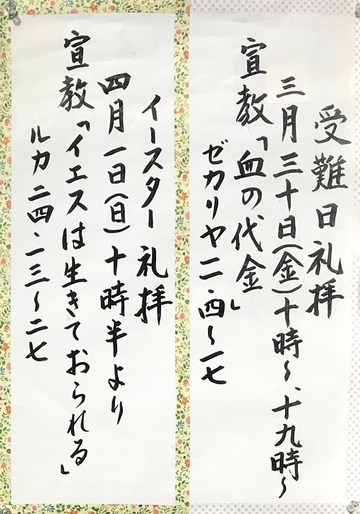 受難日礼拝
三月三十日(金)十時〜、十九時〜
宣教「血の代金」
ゼカリヤ一一・四〜一七
イースター礼拝
四月一日(日)十時半より
宣教「イエスは生きておられる」
ルカ二四・一三〜二七